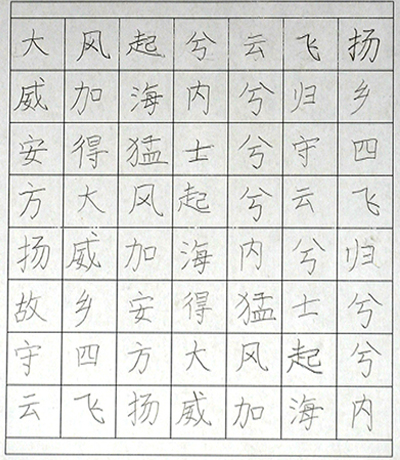 大风起兮云飞扬
威加海内兮归乡
安得猛士兮守四
方大风起兮云飞
扬威加海内兮归
故乡安得猛士兮
守四方大风起兮
云飞扬威加海内